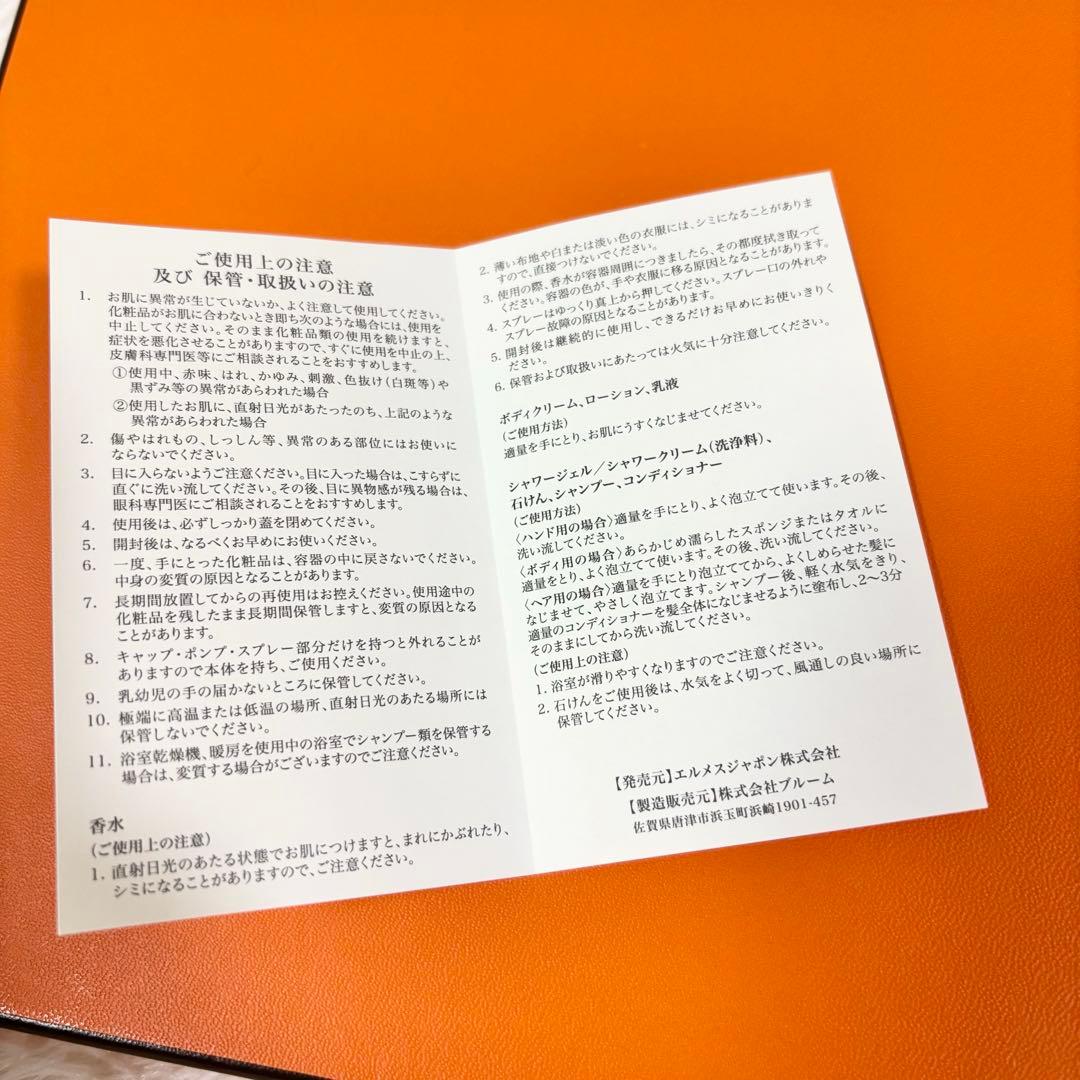 ご使用上の注意
及び 保管・取扱いの注意
1. お肌に異常が生じていないか、よく注意して使用してください。
化粧品がお肌に合わないとき即ち次のような場合には、使用を
中止してください。そのまま化粧品類の使用を続けますと、
症状を悪化させることがありますので、すぐに使用を中止の上、
皮膚科専門医等にご相談されることをおすすめします。
①使用中、赤味、はれ、かゆみ、刺激、色抜け(白斑等)や
黒ずみ等の異常があらわれた場合
②使用したお肌に、直射日光があたったのち、上記のような
異常があらわれた場合
2. 傷やはれもの、しっしん等、異常のある部位にはお使いに
ならないでください。
3. 目に入らないようご注意ください。目に入った場合は、こすらずに
直ぐに洗い流してください。その後、目に異物感が残る場合は、
眼科専門医にご相談されることをおすすめします。
4. 使用後は、必ずしっかり蓋を閉めてください。
5. 開封後は、なるべくお早めにお使いください。
6. 一度、手にとった化粧品は、容器の中に戻さないでください。
中身の変質の原因となることがあります。
7. 長期間放置してからの再使用はお控えください。使用途中の
化粧品を残したまま長期間保管しますと、変質の原因となる
ことがあります。
8. キャップ・ポンプ・スプレー部分だけを持つと外れることが
ありますので本体を持ち、ご使用ください。
9. 乳幼児の手の届かないところに保管してください。
10. 極端に高温または低温の場所、直射日光のあたる場所には
保管しないでください。
11. 浴室乾燥機、暖房を使用中の浴室でシャンプー類を保管する
場合は、変質する場合がございますのでご注意ください。
香水
(ご使用上の注意)
1. 直射日光のあたる状態でお肌につけますと、まれにかぶれたり、
シミになることがありますので、ご注意ください。
2. 薄い布地や白または淡い色の衣服には、シミになることがありま
すので、直接つけないでください。
3. 使用の際、香水が容器周囲につきましたら、その都度拭き取って
ください。容器の色が、手や衣服に移る原因となることがあります。
4. スプレーはゆっくり真上から押してください。スプレー口の外れや
スプレー故障の原因となることがあります。
5. 開封後は継続的に使用し、できるだけお早めにお使いきりく
ださい。
6. 保管および取扱いにあたっては火気に十分注意してください。
ボディクリーム、ローション、乳液
(ご使用方法)
適量を手にとり、お肌にうすくなじませてください。
シャワージェル/シャワークリーム(洗浄料)、
石けん、シャンプー、コンディショナー
(ご使用方法)
〈ハンド用の場合〉適量を手にとり、よく泡立てて使います。その後、
洗い流してください。
〈ボディ用の場合〉あらかじめ濡らしたスポンジまたはタオルに
適量をとり、よく泡立てて使います。その後、洗い流してください。
〈ヘア用の場合〉適量を手にとり泡立ててから、よくしめらせた髪に
なじませて、やさしく泡立てます。シャンプー後、軽く水気をきり、
適量のコンディショナーを髪全体になじませるように塗布し、2〜3分
そのままにしてから洗い流してください。
(ご使用上の注意)
1. 浴室が滑りやすくなりますのでご注意ください。
2. 石けんをご使用後は、水気をよく切って、風通しの良い場所に
保管してください。
【発売元】エルメスジャポン株式会社
【製造販売元】株式会社ブルーム
佐賀県唐津市浜玉町浜崎1901-457